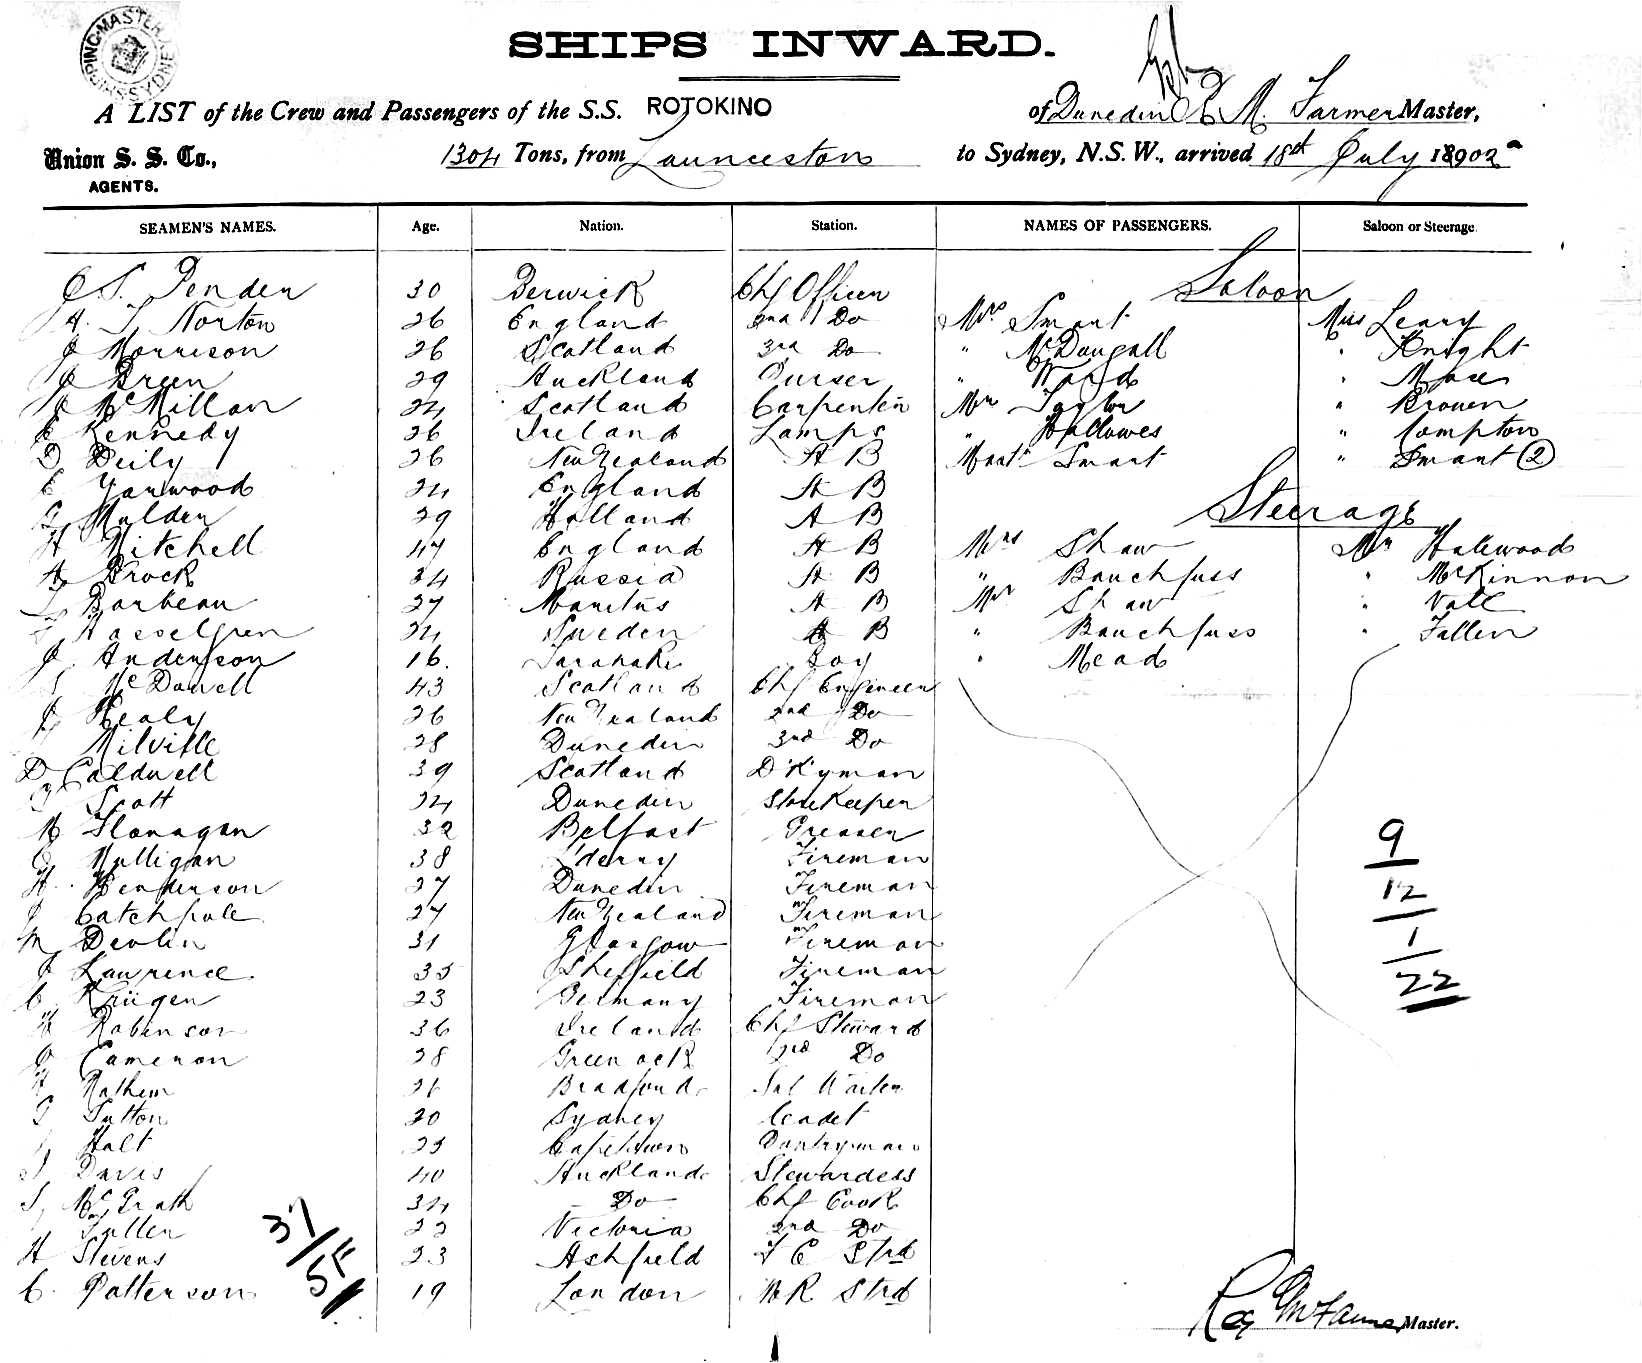 SHIPS INWARD.
A LIST of the Crew and Passengers of the S.S. ROTOKINO of Dunedin M. Farmer Master,
Union S. S. Co., AGENTS. 1304 Tons, from Launceston to Sydney, N.S.W., arrived 18st July 18902
SEAMEN'S NAMES. Age. Nation. Station. NAMES OF PASSENGERS. Saloon or Steerage
S. Penden 30 Berwick Chf Officer Saloon
A. J. Norton 26 England 2nd Do Mrs Smart Miss Leary
J Morrison 26 Scotland 3rd Do " McDougall " Knight
J Breen 29 Auckland Purser " Ward " Mose
McMillan 24 Scotland Carpenter Mr Taylor " Brown
E Kennedy 26 Ireland Lamps " Hallowes " Compton
D Deily 26 New Zealand A B Mast. Smart " Smart 2
E Yarwood 24 England A B
G Mulder 29 Holland A B Steerage
H Mitchell 47 England A B Mrs Shaw Mr Halewood
A Brock 34 Russia A B " Bauchfuss " McKinnon
L Barbeau 27 Mauritus A B Mr Shaw " Vale
F Hasselgren 24 Sweden A B " Bauchfuss " Fallen
J. Anderson 16. Taranaki Boy " Mead
McDowell 43 Scotland Chf Engineer
J Healy 26 New Zealand 2nd Do
Milville 28 Dunedin 3rd Do
D Caldwell 39 Scotland D'Kyman
Scott 24 Dunedin Storekeeper
M Flanagan 32 Belfast Greaser
9
Mulligan 38 L'derry Fireman
H. Henderson 27 Dunedin Fireman
12
J Catchpole 27 New Zealand Fireman
M Devlin 31 Glasgow Fireman
1
J Lawrence. 35 Sheffield Fireman
22
C Krügen 23 Germany Fireman
Robinson 36 Ireland Chf Steward
Cameron 28 Greenock 2nd Do
Mathem 21 Bradford Sal Waiter
G Sutton 20 Sydney Cadet
Halt 25 Capetown Pantryman
Davis 40 Auckland Stewardess
S, McGrath 34 Do Chf Cook
Fullen 22 Victoria 2nd Do
37/54
H Stevens 23 Ashfield F C Strd
C. Patterson 19 London M R Strd
Master.